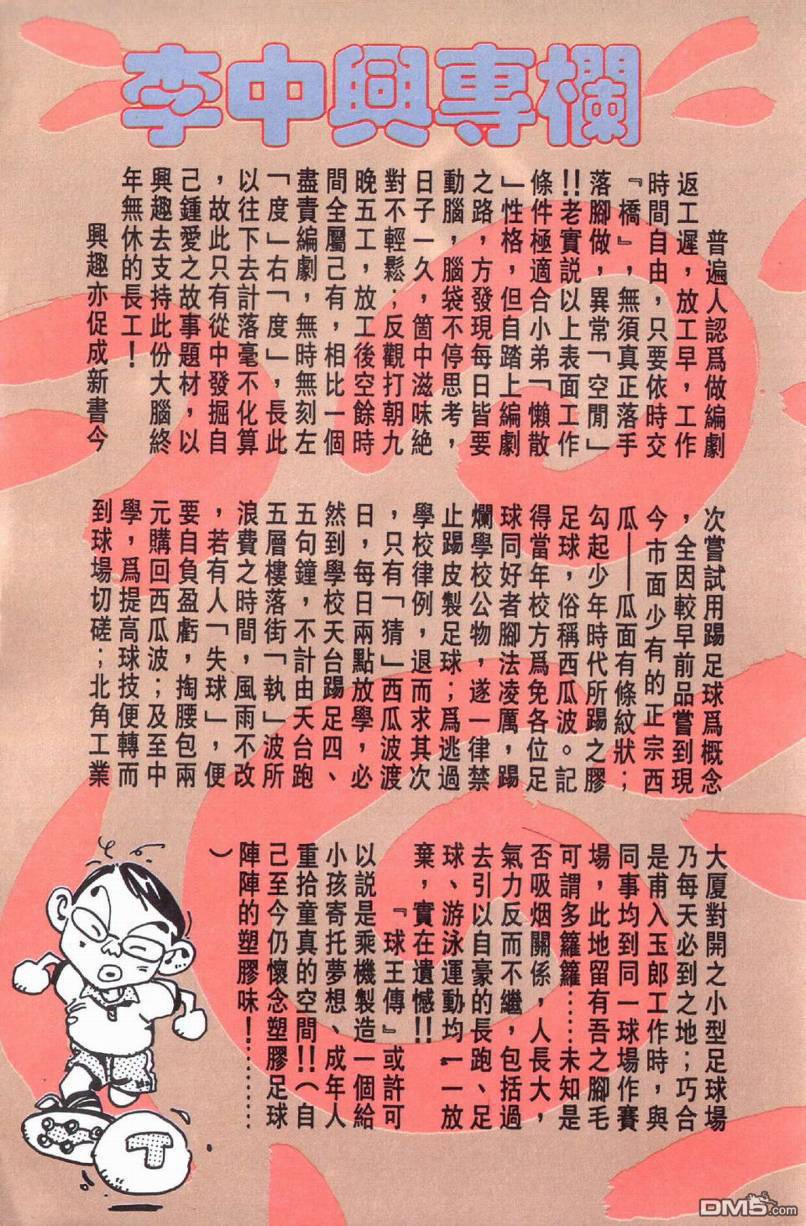 李中興專欄
普遍人認爲做編劇
返工遲，放工早，工作
時間自由，只要依時交
『橋』，無須真正落手
落腳做，異常「空閒」
!!老實説以上表面工作
條件極適合小弟「懶散
」性格，但自踏上編劇
之路，方發現每日皆要
動腦，腦袋不停思考，
日子一久，箇中滋味絶
對不輕鬆；反觀打朝九
晚五工，放工後空餘時
間全屬己有，相比一個
盡責編劇，無時無刻左
「度」右「度」，長此
以往下去計落毫不化算
，故此只有從中發掘自
己鍾愛之故事題材，以
興趣去支持此份大腦終
年無休的長工！
興趣亦促成新書今
次嘗試用踢足球爲概念
，全因較早前品嘗到現
今市面少有的正宗西
瓜——瓜面有條紋狀；
勾起少年時代所踢之膠
足球，俗稱西瓜波。記
得當年校方爲免各位足
球同好者腳法凌厲，踢
爛學校公物，遂一律禁
止踢皮製足球；爲逃過
學校律例，退而求其次
，只有「猜」西瓜波渡
日，每日兩點放學，必
然到學校天台踢足四、
五句鐘，不計由天台跑
五層樓落街「執」波所
浪費之時間，風雨不改
，若有人「失球」，便
要自負盈虧，掏腰包兩
元購回西瓜波；及至中
學，爲提高球技便轉而
到球場切磋；北角工業
大厦對開之小型足球場
乃每天必到之地；巧合
是甫入玉郎工作時，與
同事均到同一球場作賽
場，此地留有吾之腳毛
可謂多籮籮……未知是
否吸烟關係，人長大，
氣力反而不繼，包括過
去引以自豪的長跑、足
球、游泳運動均一一放
棄，實在遺憾!!
『球王傳』或許可
以説是乘機製造一個給
小孩寄托夢想、成年人
重拾童真的空間!!（自
己至今仍懷念塑膠足球
陣陣的塑膠味！………
）
T
DM5.com